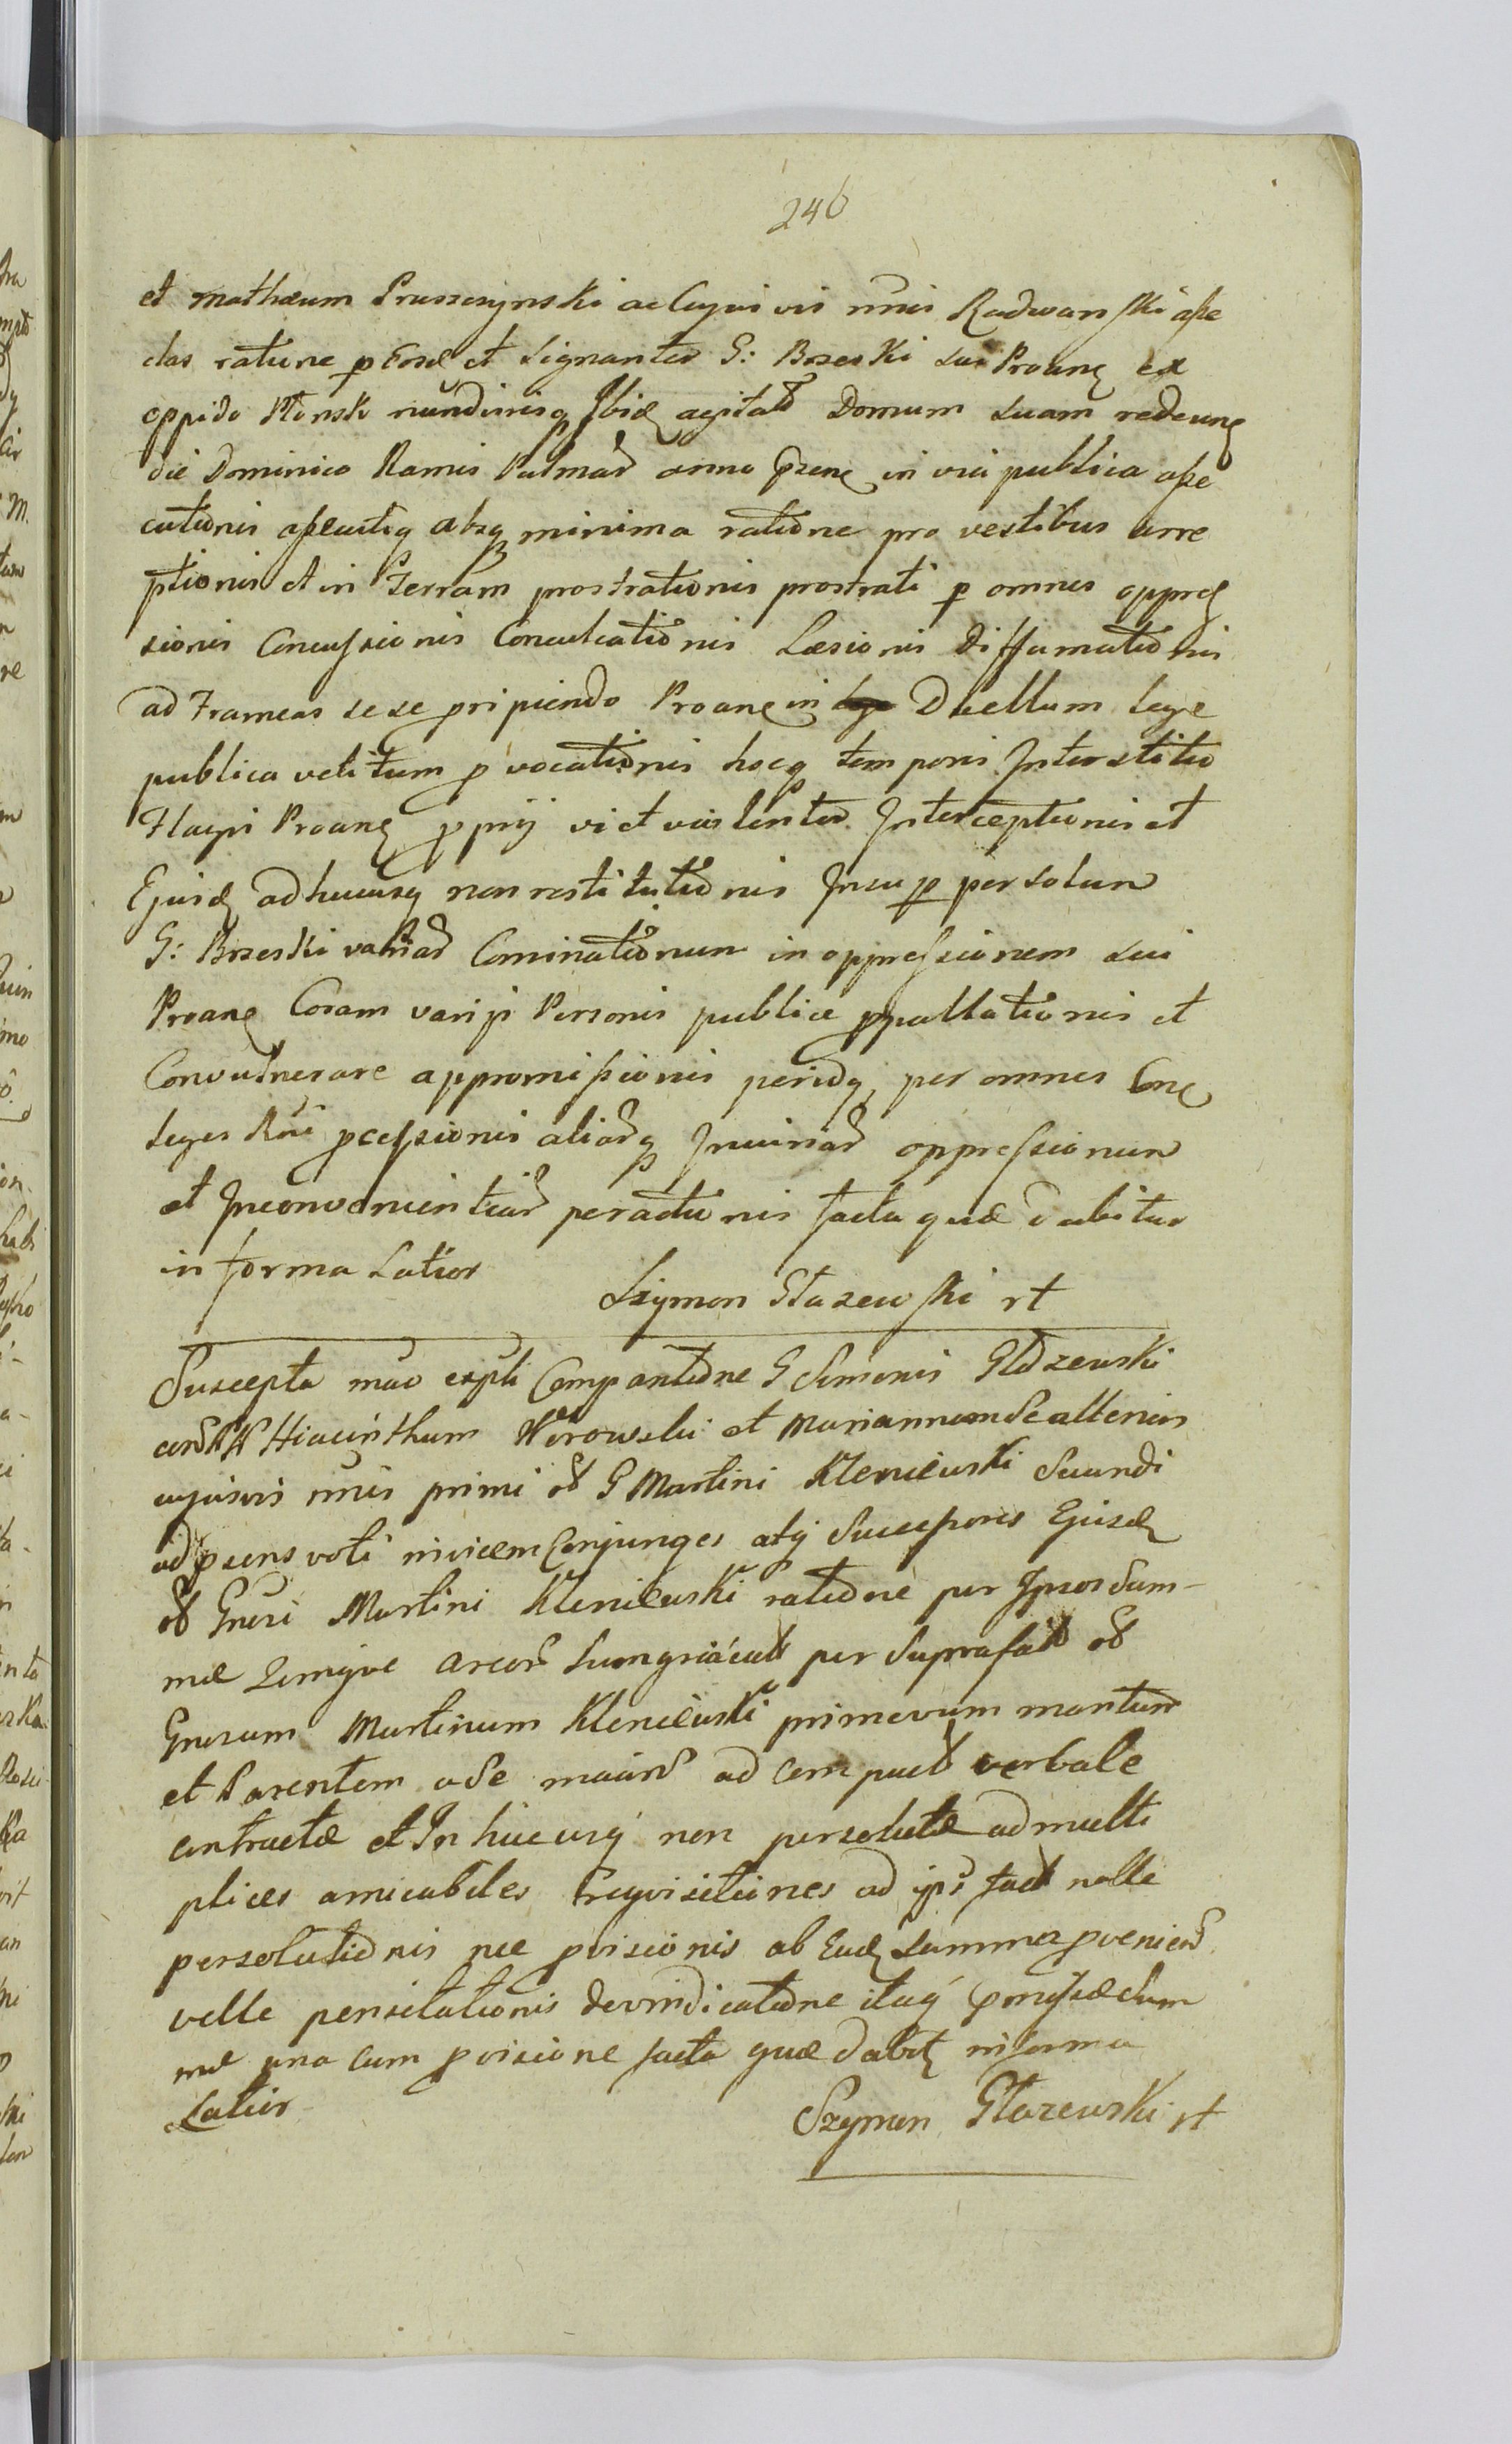 246
et Mathæum Pruszczynski ac cuyusvis nŭis Radwanski aſse
clas ratione p Eosd et signanter G: Brzeski sui Proanę ex
oppido Płonsk nundinisq Ibid agitat Domum suam redeunę
die Dominico Ramis Palmar anno przenę in via publica aſse
cutionis aſsecutiq absq minima ratione pro vestibus arre
ptionis et in Terram prostrationis prostrati p omnes oppreſ
sionis Concuſsionis Conculcationis Læsionis diffamationis
ad Frameas sese pripiendo Proanę in Duellum lege
publica vetitum p vocationis hocq temporis Interstitio
Flagri Proanę pprij vi et violenter Interceptionis et
Ejusd adhucusq non restitutionis Insup per solum
G: Brzeski variar Cominationum in oppreſsionem sui
Proanę Coram varijs Personis publice ppallationis et
Convulnerare appromiſsionis peridq per omnes Conę
leges Rnŭ pceſsionis aliarq Injuriar oppreſsionum
et Inconvenientiar peractionis facta quæ dabitur
in forma Latior
Szymon Głazewski rt
Suscepta mao expli Comparitione G Simonis Głazewski
contr Hiacinthum Worowski et Mariannam de allenius
cujusvis nŭis primi ol G Martini Kleniewski Secundi
ad psens voti nivicem Conjunges atq Succeſsores Ejusd
ol Gnrsi Martini Kleniewski ratione per Ipsos Sum-
mæ per Suprafat ol
Gnrsum Martinum Kleniewski primevum maritum
et Parentem ad compuct verbale
contractæ et In hucusq non persolutæ ad multi
plices amicabiles requisitiones ad ips fact nolle
persolutionis nec pvisionis ab Ead Summa pvenien
velle pensitationis devindicatione itaq pmiſsæ Sum
mæ una cum pvisione facta quæ dabit in forma
Latior
Szymon Głazewski rt